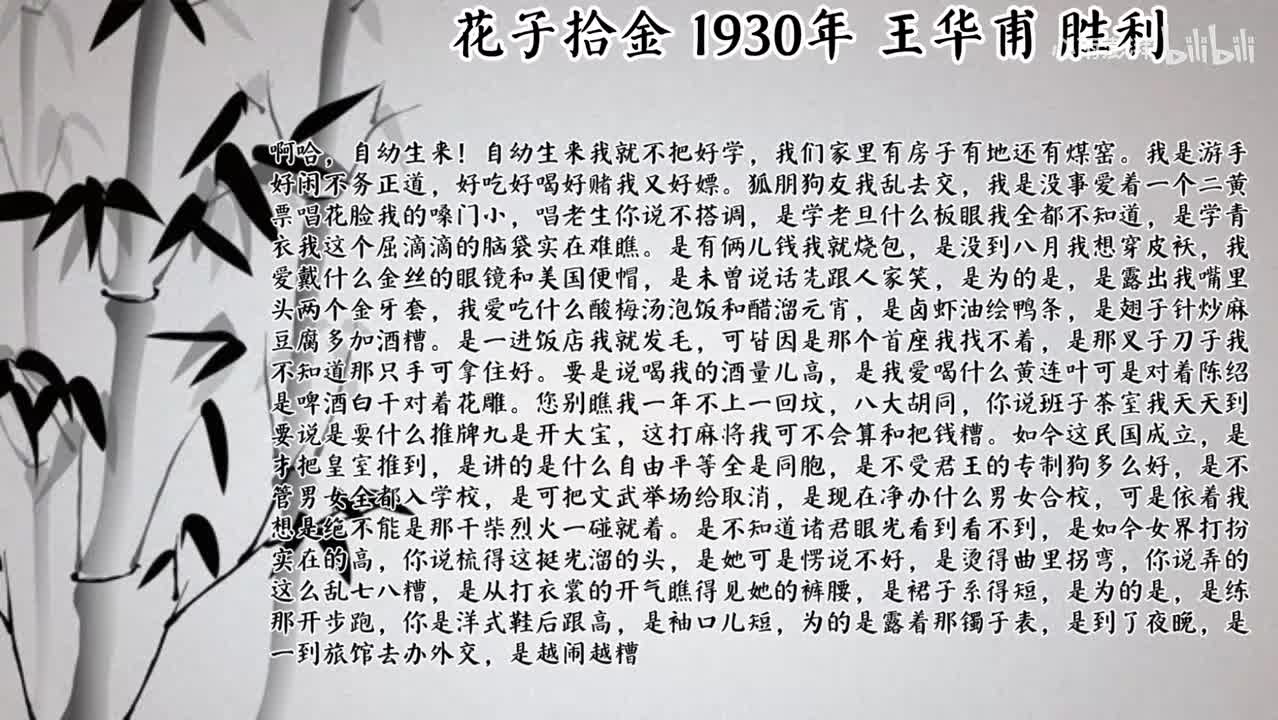 花子拾金 1930年 王华甫 胜利
bilibili
啊哈，自幼生来！自幼生来我就不把好学，我们家里有房子有地还有煤窑。我是游手
好闲不务正道，好吃好喝好赌我又好嫖。狐朋狗友我乱去交，我是没事爱着一个二黄
票唱花脸我的嗓门小，唱老生你说不搭调，是学老旦什么板眼我全都不知道，是学青
衣我这个屈滴滴的脑袋实在难瞧。是有俩儿钱我就烧包，是没到八月我想穿皮袄，我
爱戴什么金丝的眼镜和美国便帽，是未曾说话先跟人家笑，是为的是，是露出我嘴里
头两个金牙套，我爱吃什么酸梅汤泡饭和醋溜元宵，是卤虾油绘鸭条，是翅子针炒麻
豆腐多加酒糟。是一进饭店我就发毛，可皆因是那个首座我找不着，是那叉子刀子我
不知道那只手可拿住好。要是说喝我的酒量儿高，是我爱喝什么黄连叶可是对着陈绍
是啤酒白干对着花雕。您别瞧我一年不上一回坟，八大胡同，你说班子茶室我天天到
要说是耍什么推牌九是开大宝，这打麻将我可不会算和把钱糟。如今这民国成立，是
才把皇室推到，是讲的是什么自由平等全是同胞，是不受君王的专制狗多么好，是不
管男女全都入学校，是可把文武举场给取消，是现在净办什么男女合校，可是依着我
想是绝不能是那干柴烈火一碰就着。是不知道诸君眼光看到看不到，是如今女界打扮
实在的高，你说梳得这挺光溜的头，是她可是愣说不好，是烫得曲里拐弯，你说弄的
这么乱七八糟，是从打衣裳的开气瞧得见她的裤腰，是裙子系得短，是为的是，是练
那开步跑，你是洋式鞋后跟高，是袖口儿短，为的是露着那镯子表，是到了夜晚，是
一到旅馆去办外交，是越闹越糟